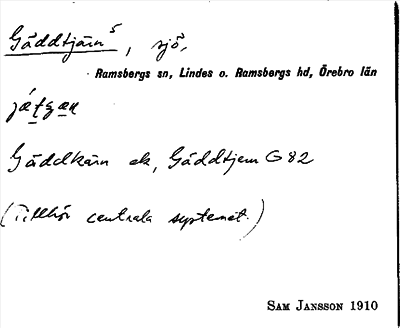 Gäddtjärn⁵, sjö.
Ramsbergs sn, Lindes o. Ramsbergs hd, Örebro län
Gäddkärn ek, Gäddtjern G 82
(Tillhör centrala systemet.)
SAM JANSSON 1910